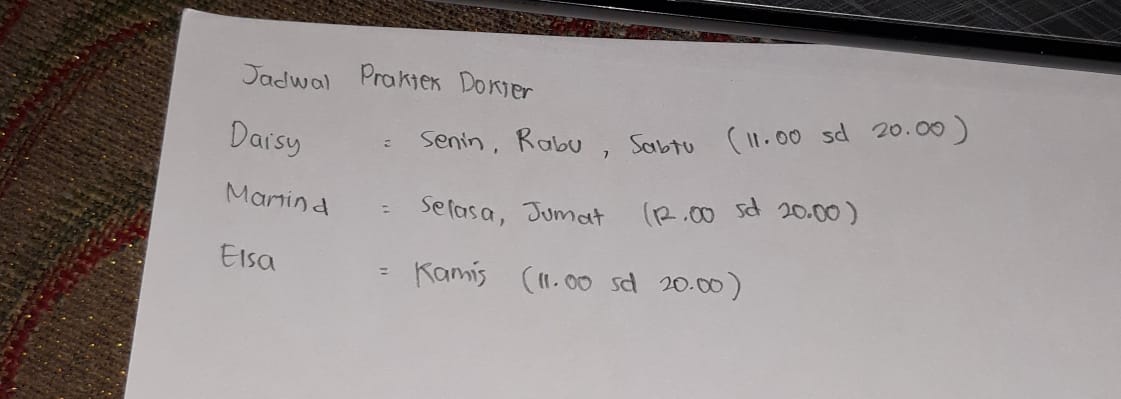 Jadwal Praktek Dokter
Daisy = Senin, Rabu, Sabtu (11.00 sd 20.00)
= Selasa, Jumat (12.00 sd 20.00)
Elsa = Kamis (11.00 sd 20.00)